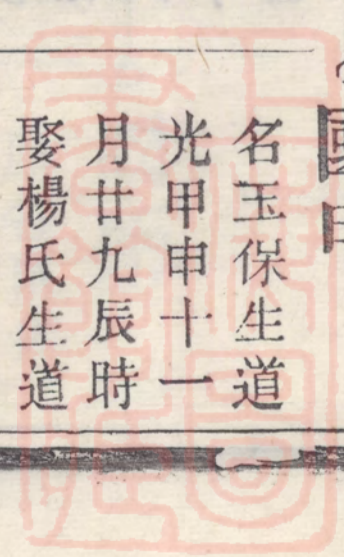 名玉保生道
光甲申十一
月廿九辰時
娶楊氏生道